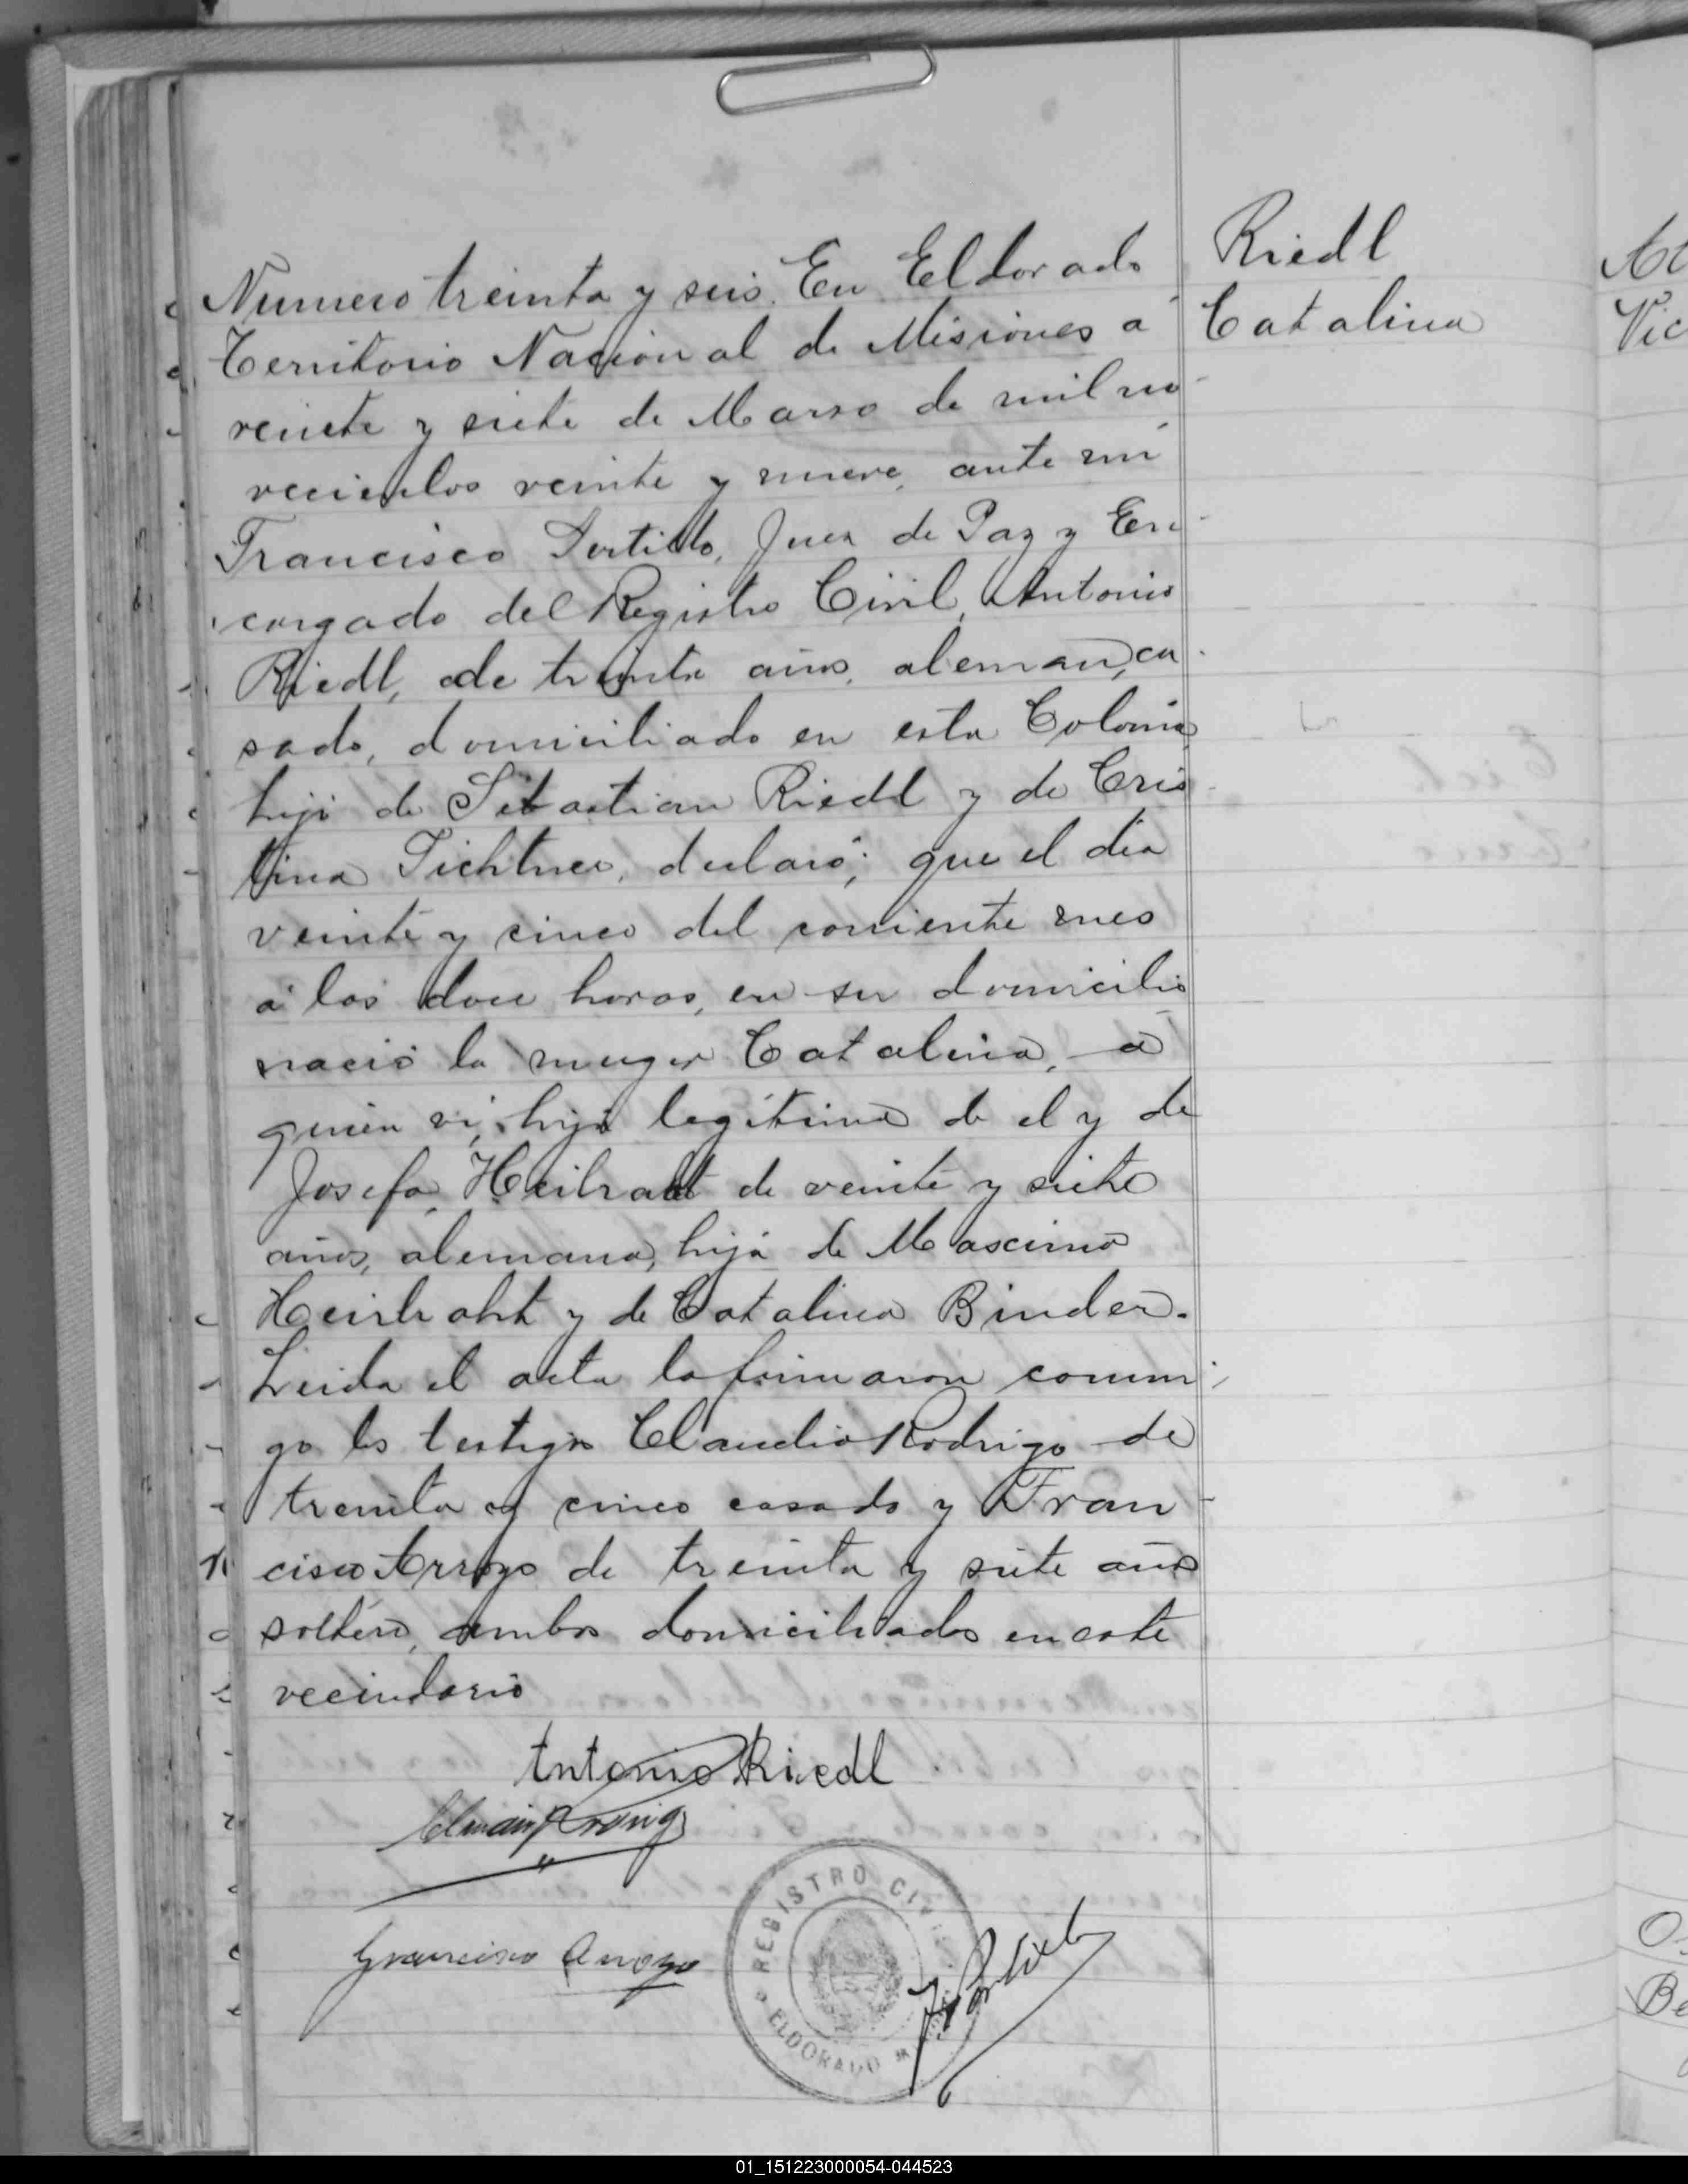 Riedl
Catalina
Numero treinta y seis. En Eldorado
Territorio Nacional de Misiones á
veinte y siete de Marzo de mil no-
vecientos veinte y nueve, ante mí
Francisco Juez de Paz y En-
cargado del Registro Civil, Antonio
Riedl, de treinta años, aleman, ca-
sado, domiciliado en esta Colonia,
hijo de Sebastian Riedl y de Cris-
tina declaró; que el dia
veinte y cinco del corriente mes
á las doce horas, en su domicilio
nació la muger Catalina, á
quien vi, hija legitima de el y de
Josefa de veinte y siete
años, alemana, hija de Mascimo
y de Catalina Binder.
Leida el acta la firmaron conmi-
go los testigos Claudio Rodrigo de
treinta y cinco casado y Fran-
cisco Arroyo de treinta y siete años
soltero, ambos domiciliados en este
vecindario
Antonio Riedl
Francisco Arroyo
REGISTRO CIVIL
ELDORADO
01_151223000054-044523